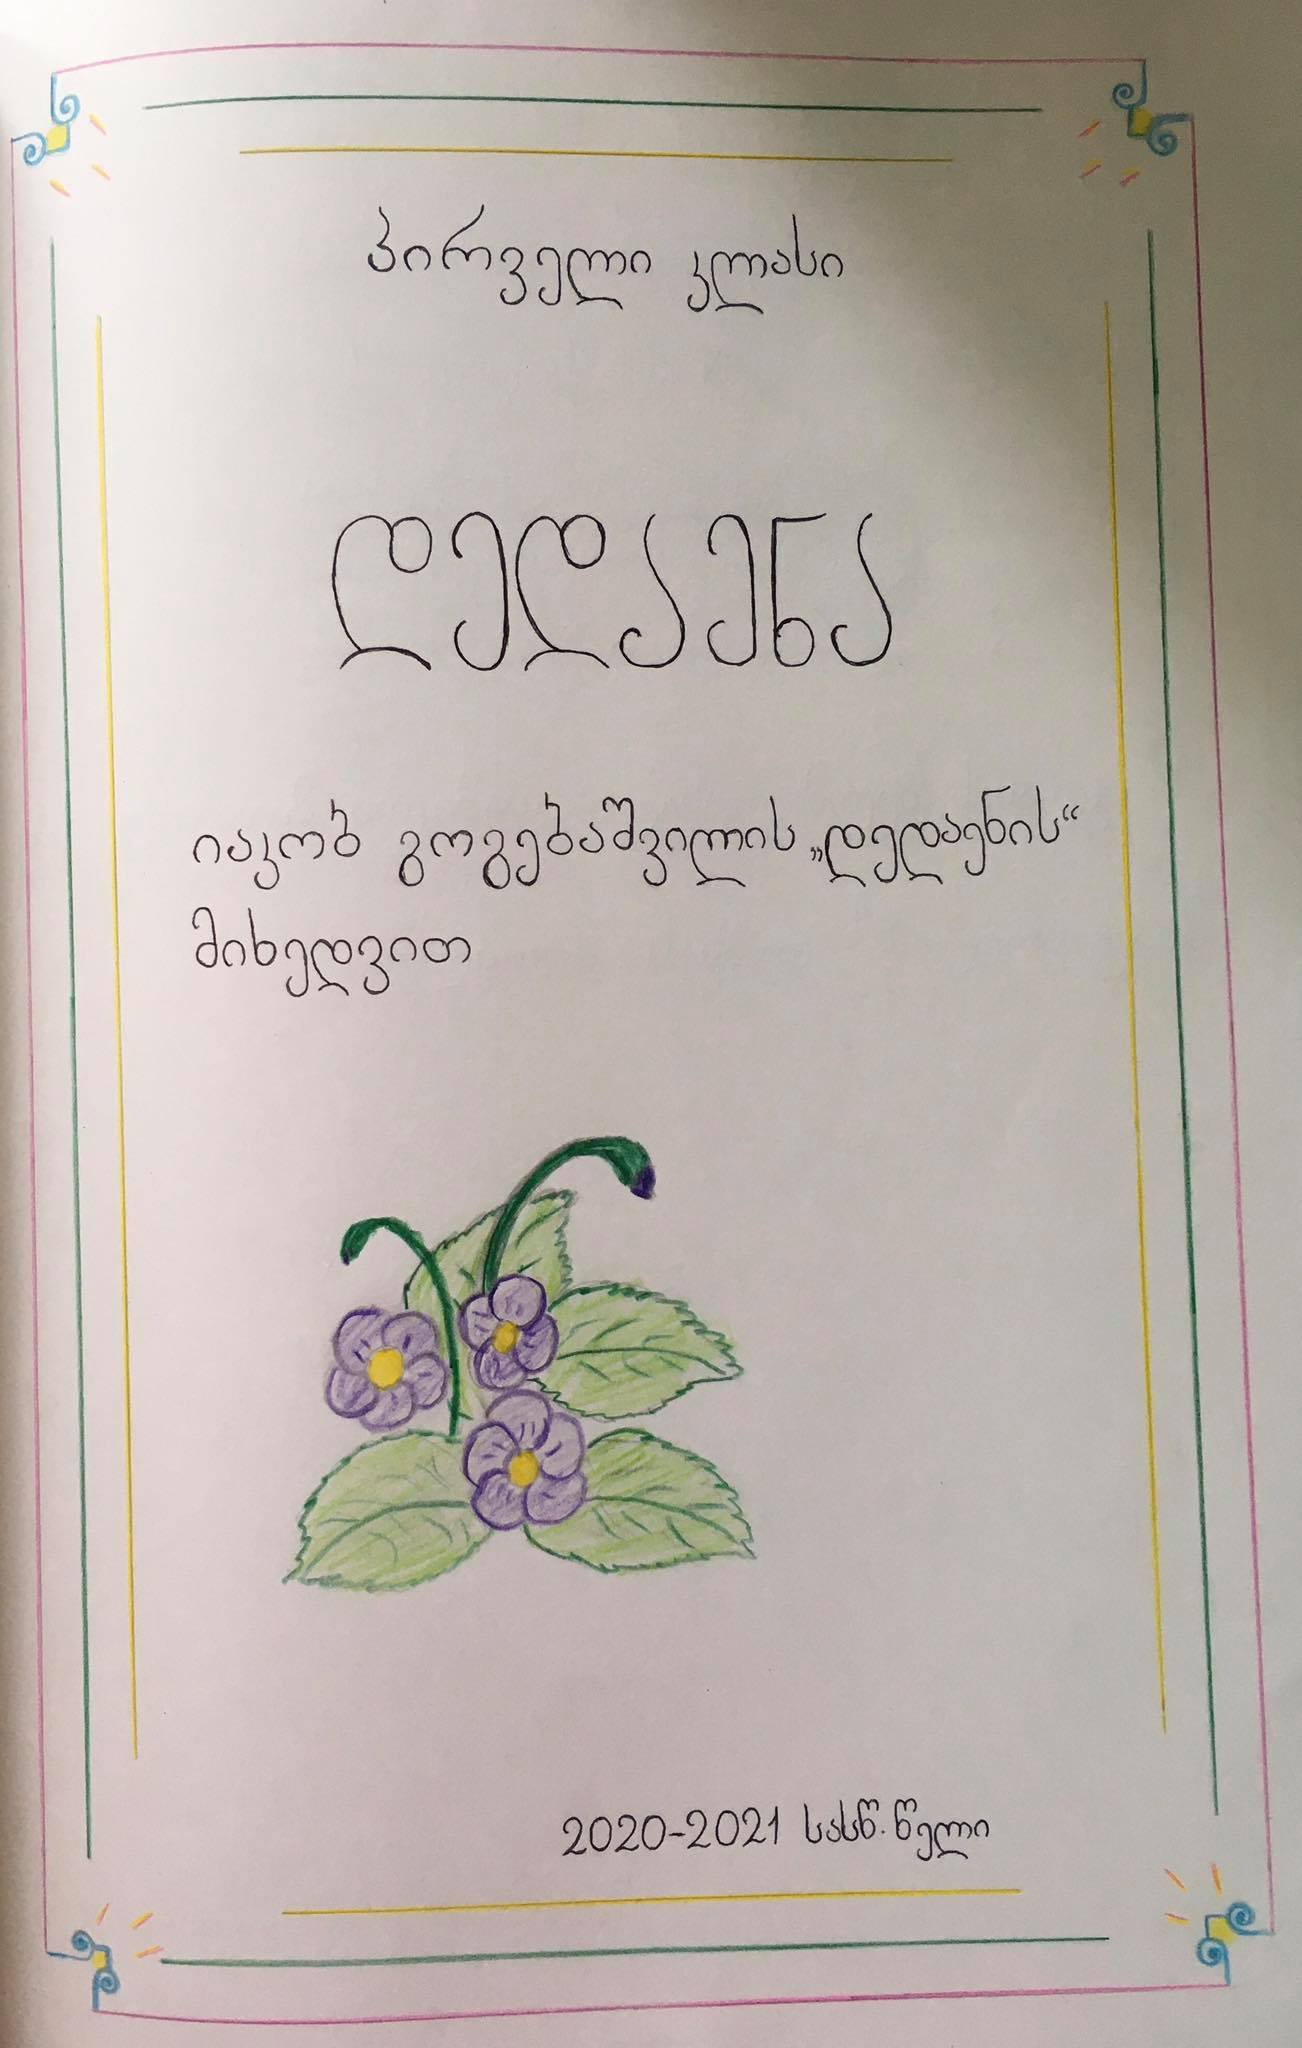 პირველი კლასი
დედაენა
იაკობ გოგებაშვილის „დედაენის“
მიხედვით
2020-2021 სასწ. წელი